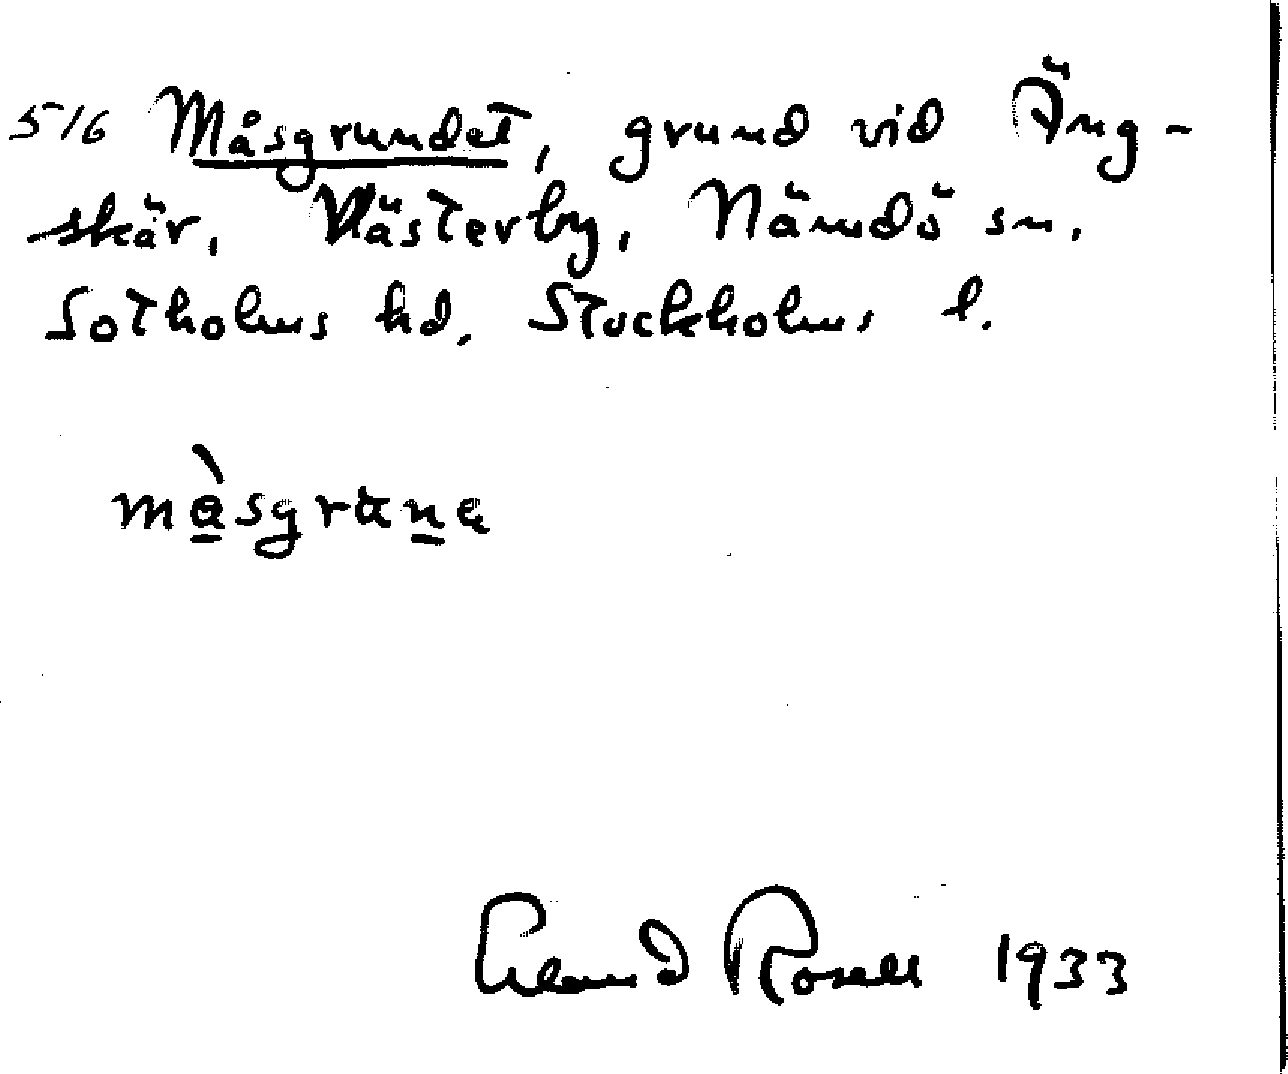 516 Måsgrundet, grund vid Äng-
skär, Västerby, Nämdö sn.
Sotholms hd. Stockholms l.
màsgruna
Rosell 1933